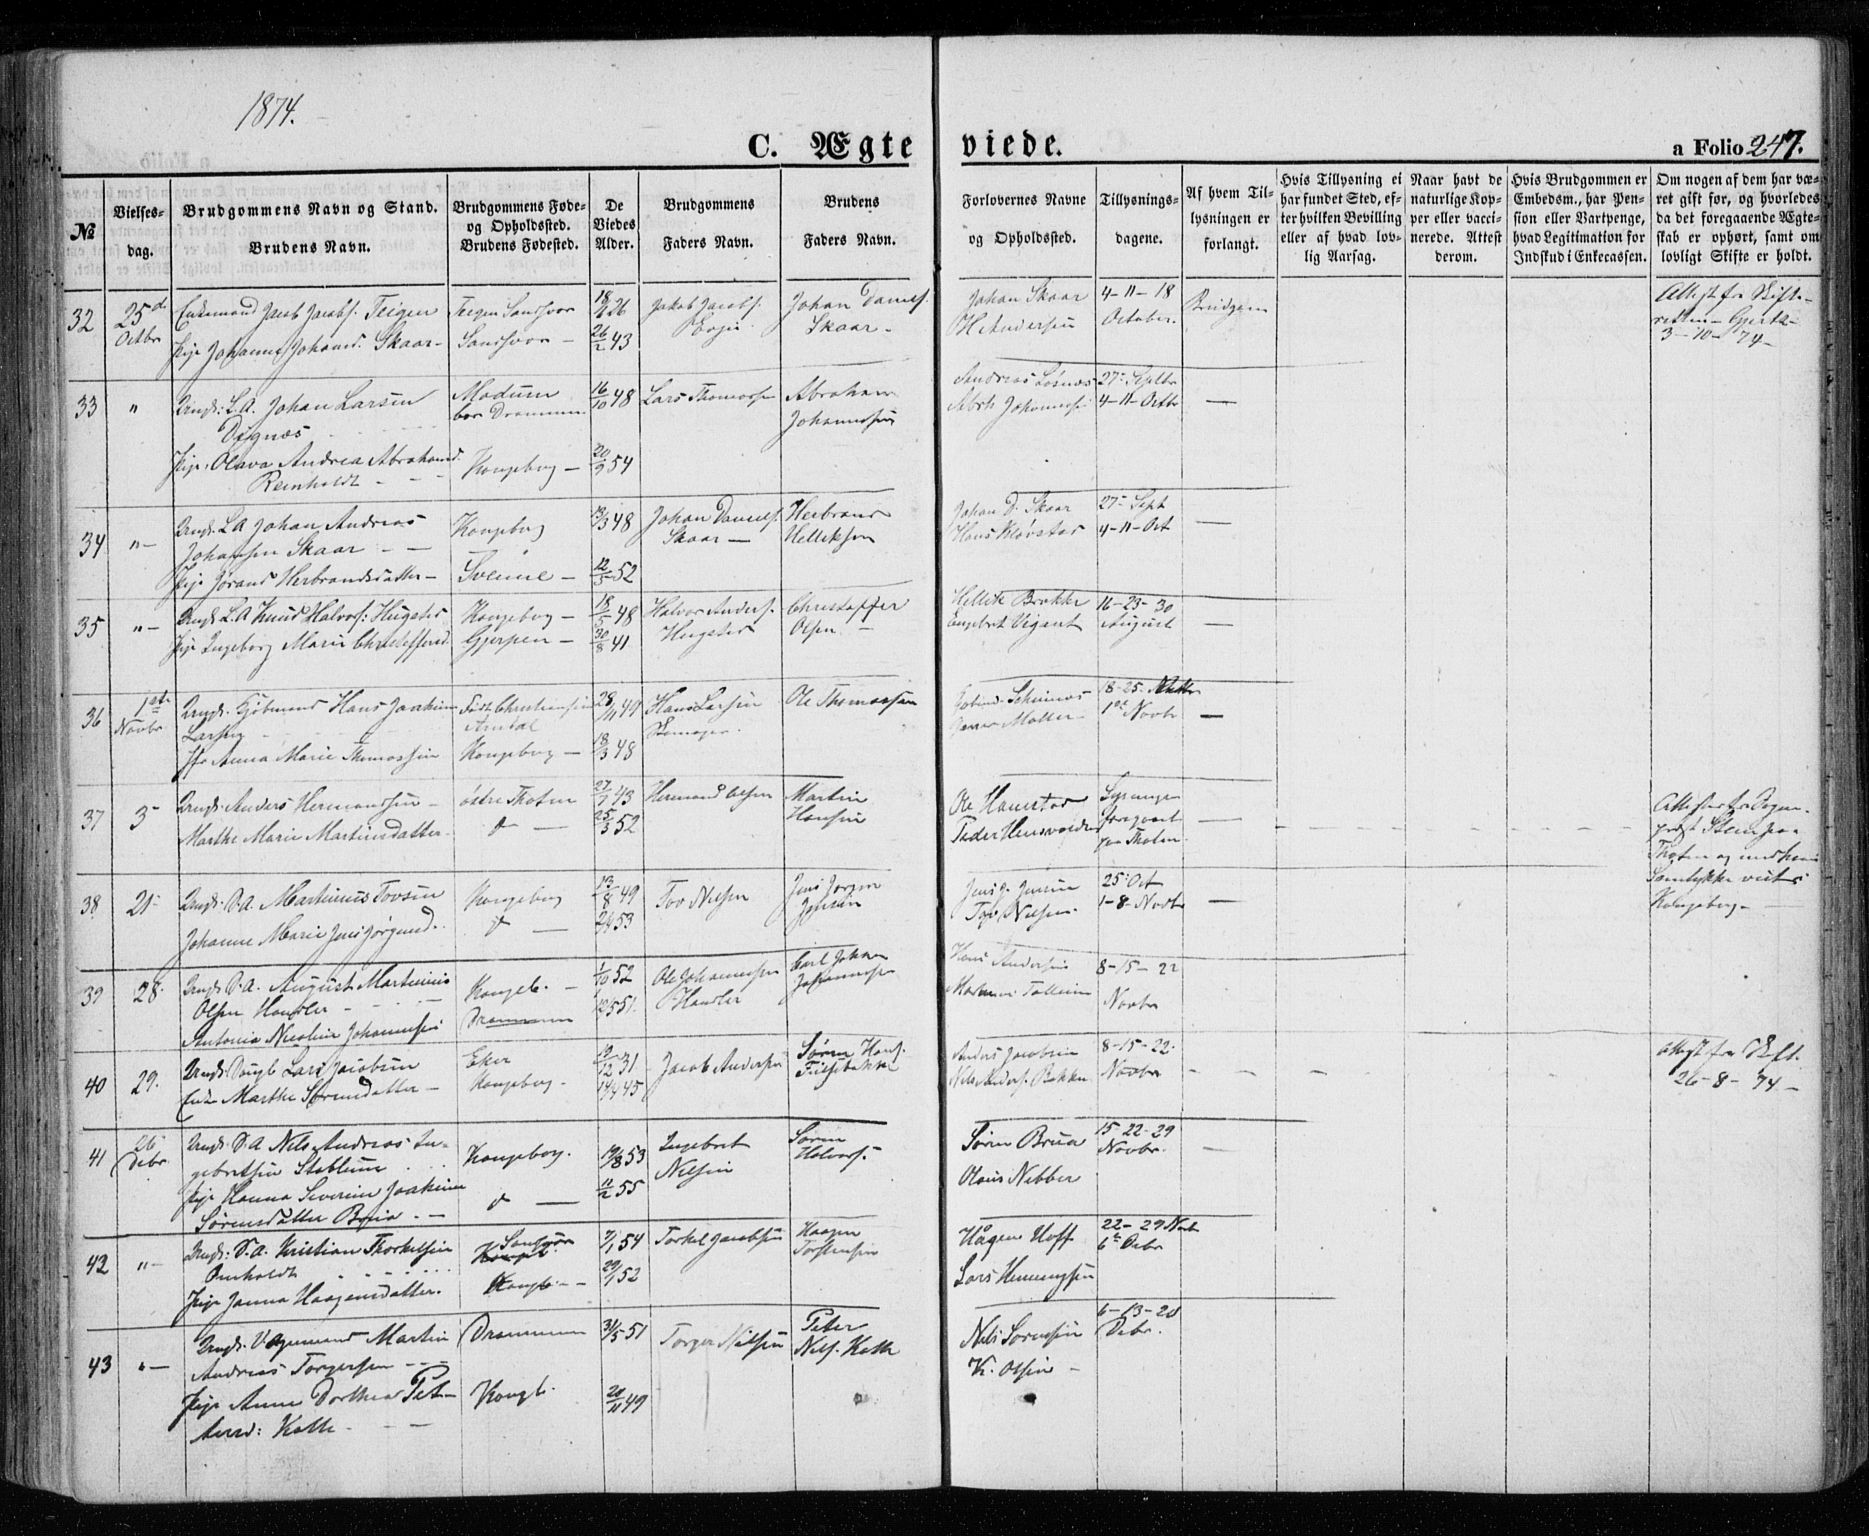 1874.
C. Ægte viede. a Folio 247.
№
Vielses-
dag.
Brudgommens Navn og Stand.
Brudens Navn.
Brudgommens Føde-
og Opholdssted.
Brudens Fødested.
De
Viedes
Alder.
Brudgommens
Faders Navn.
Brudens
Faders Navn.
Forlovernes Navne
og Opholdssted.
Tillysnings-
dagene.
Af hvem Til-
lysningen er
forlangt.
Hvis Tillysning ei
har fundet Sted, ef-
ter hvilken Bevilling
eller af hvad lov-
lig Aarsag.
Naar havt de
naturlige Kop-
per eller vacci-
nerede. Attest
derom.
Hvis Brudgommen er
Embedsm., har Pen-
sion eller Vartpenge,
hvad Legitimation for
Indskud i Enkecassen.
Om nogen af dem har væ-
ret gift før, og hvorledes
da det foregaaende Ægte-
skab er ophørt, samt om
lovligt Skifte er holdt.
32 25de Octbr
Enkemand Jacob Jacobs. Teigen
Pige Johanne Johansd. Skaar-
Teigen Sandsvær
Sandsvær -
18/ 26
26/2 43
Jakob Jacobs.
Johan Daniels.
Skaar -
Johan Skaar
H. Andersen
4-11-18
October.
Brudgom
Attest fra Skifte-
retten
3-10-74-
33 "
Ungk. L.A. Johan Larsen
Dignæs
Pige: Olava Andrea Abrahamsd.
Reinholdt - - -
Modum
bor Drammen
Kongsberg -
16/10 48
20/9 54
Lars Thomassen
Abraham
Johannessen
Andreas Løsnæs
Abrh Johannessen
27 Septbr
4-11-Octbr
—
34 "-
Ungk. L.A. Johan Andreas
Johansen Skaar - -
Pige Jørand Herbrandsdatter-
Kongsberg
Svenne -
13/3 48
12/5 52
Johan Daniels.
Skaar -
Herbrand
Helleksen
Johan D. Skaar
Hans Kløvstad
27 Sept
4-11-Oct
—
35 "-
Ungk. L.A. Knud Halvors. Hugsted
Pige Ingeborg Marie Christoffersd.
Kongsberg -
Gjerpen -
18/5 48
30/8 41
Halvor Anders.
Hugsted
Christoffer
Olsen -
Hellik Brekke
Engebret Vigant
16-23-30
August
—
36 1ste Novbr
Ungk. Kjøbmand Hans Joakim
Larsen
Jfr Anna Marie Thomassen
Født Christianssand
Arndal
Kongsberg -
28/11 49
18/3 48
Hans Larsen
Ole Thomassen
Møller -
18-25
1ste Novbr
—
37 3-
Ungk. Anders Hermandsen -
Marthe Marie Martinsdatter.
østre Thoten
do —
27/7 43
25/3 52
Hermand Olsen
Martin
Hansen
Ole Hanestad
Peder
Lysningen
foregaaet
paa Thoten
—
Attest fra Sogne-
præst
Thoten og med hans
Samtykke viet i
Kongsberg -
38 21-
Ungk. S.A. Martinius Tovsen
Johanne Marie Jens Jørgensd.
Kongsberg
do —
13/8 49
53
Tov Nilsen
Jens Jørgen
Jensen
Jens J. Jensen
Tov Nilsen
25 Oct
1-8-Novbr
—
39 28
Ungk. S.A. August Martinius
Olsen Handler -
Antonia Nicoline Johannesen
Kongsb. -
Drammen
1/10 52
51.
Ole Johannessen
Handler
Carl Johan
Johannesen
Hans Andersen
8-15-22
Novbr
40 29.
Ungk. Lars Jacobsen
Enke Marthe Sørensdatter -
Eker
Kongsberg -
19/12 31
14/4 45
Jacob Andersen
Søren Hans.
Anders Jacobsen
Nils Anders. Bakken
8-15-22.
Novbr
Attest fra Skift.
26-8-74-
41 26 Debr
Ungk. S.A. Nils Andreas In-
gebretsen Stablum
Pige Hanna Severine Joakime
Sørensdatter Brua. -
Kongsberg.
do —
19/8 53
11/2 55
Ingebret
Nilsen
Søren
Halvors.
Søren Brua
Olaus Nebber
15-22-29
Novbr.
—
42 "-
Ungk. S.A. Kristian Thorkelsen
Omholdt
Pige Janna Haagensdatter.
Sandsvær
Kongsb.
Kongsb. - -
7/1 54
29/1 52
Torkel Jacobsen
Haagen
Torstensen
Hågen Hoff
Lars Hemmingsen
22-29 Novbr
6te Debr
43 "-
Ungk. Vognmand Martin
Andreas Torgersen - - -
Pige Anne Dorthea Pet-
Kolle - -
Drammen
Kongb.
31/5 51
20/11 49
Torger Nilsen
Peter
Nils. Kolle
Nils Sørensen
K. Olsen -
6-13-20
Debr.